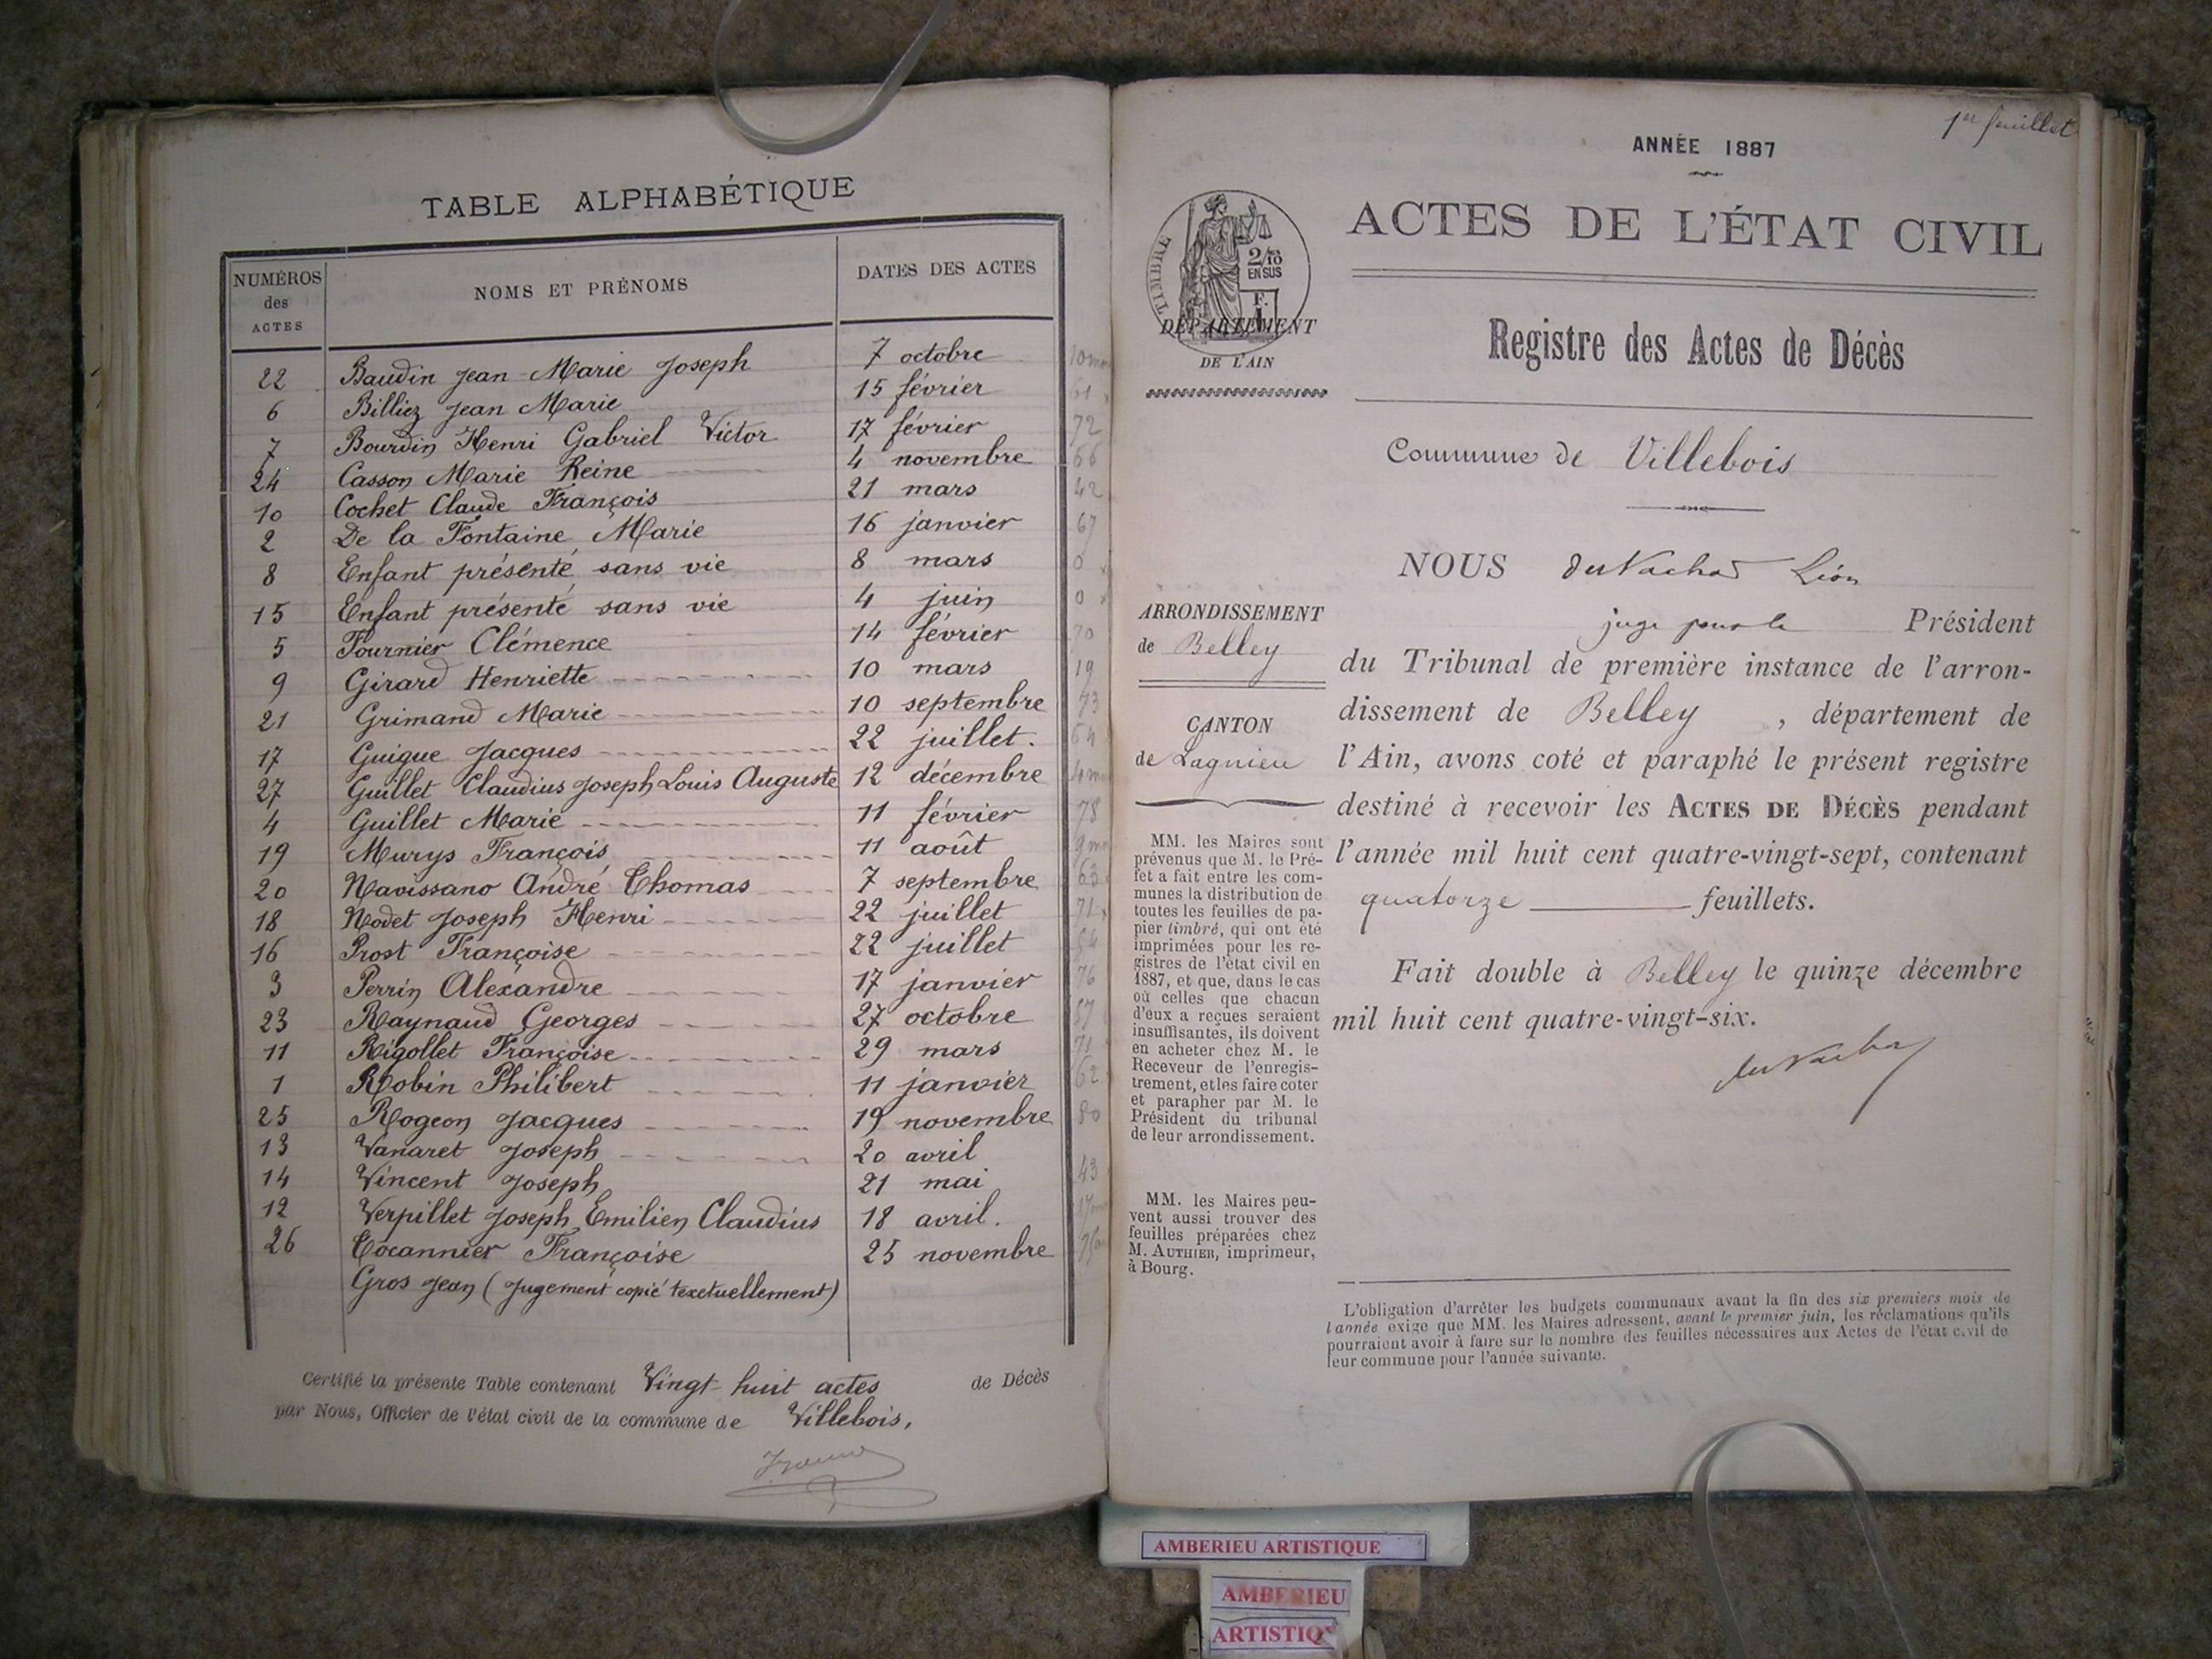 TABLE ALPHABÉTIQUE
NUMÉROS des ACTES NOMS ET PRÉNOMS DATES DES ACTES
22 Baudin Jean-Marie Joseph 7 octobre
6 Billiez Jean Marie 15 février
7 Bourdin Henri Gabriel Victor 17 février 72
24 Casson Marie Reine 4 novembre 66
10 Cochet Claude François 21 mars 42
2 De la Fontaine Marie 16 janvier 67
8 Enfant présenté sans vie 8 mars 0
15 Enfant présenté sans vie 4 juin 0
5 Fournier Clémence 14 février 70
9 Girard Henriette 10 mars 19
21 Grimand Marie 10 septembre
17 Guigue Jacques 22 juillet.
27 Guillet Claudius Joseph Louis Auguste 12 décembre
4 Guillet Marie 11 février 78
19 Murys François 11 août
20 Navissano André Thomas 7 septembre 63
18 Nodet Joseph Henri 22 juillet 71
16 Prost Françoise 22 juillet
3 Perrin Alexandre 17 janvier 76
23 Raynaud Georges 27 octobre
11 Rigollet Françoise 29 mars 71
1 Robin Philibert 11 janvier 62
25 Rogeon Jacques 19 novembre 80
13 Vanaret Joseph 20 avril
14 Vincent Joseph 21 mai 43
12 Verpillet Joseph Emilien Claudius 18 avril.
26 Tocannier Françoise 25 novembre
Gros Jean (Jugement copié textuellement)
Certifié la présente Table contenant Vingt-huit actes de Décès
par Nous, Officier de l'état civil de la commune de Villebois,
1er feuillet
ANNÉE 1887
ACTES DE L'ÉTAT CIVIL
TIMBRE
2/10
EN SUS
F.
DÉPARTEMENT
DE L'AIN
Registre des Actes de Décès
Commune de Villebois
NOUS du Nachod Léon
juge pour le Président
du Tribunal de première instance de l'arron-
dissement de Belley, département de
l'Ain, avons coté et paraphé le présent registre
destiné à recevoir les ACTES DE DÉCÈS pendant
l'année mil huit cent quatre-vingt-sept, contenant
quatorze feuillets.
Fait double à Belley le quinze décembre
mil huit cent quatre-vingt-six.
ARRONDISSEMENT
de Belley
CANTON
de Lagnieu
MM. les Maires sont
prévenus que M. le Pré-
fet a fait entre les com-
munes la distribution de
toutes les feuilles de pa-
pier timbré, qui ont été
imprimées pour les re-
gistres de l'état civil en
1887, et que, dans le cas
où celles que chacun
d'eux a reçues seraient
insuffisantes, ils doivent
en acheter chez M. le
Receveur de l'enregis-
trement, et les faire coter
et parapher par M. le
Président du tribunal
de leur arrondissement.
MM. les Maires peu-
vent aussi trouver des
feuilles préparées chez
M. AUTHIER, imprimeur,
à Bourg.
L'obligation d'arrêter les budgets communaux avant la fin des six premiers mois de
l'année exige que MM. les Maires adressent, avant le premier juin, les réclamations qu'ils
pourraient avoir à faire sur le nombre des feuilles nécessaires aux Actes de l'état civil de
leur commune pour l'année suivante.
AMBERIEU ARTISTIQUE
AMBERIEU
ARTISTIQ